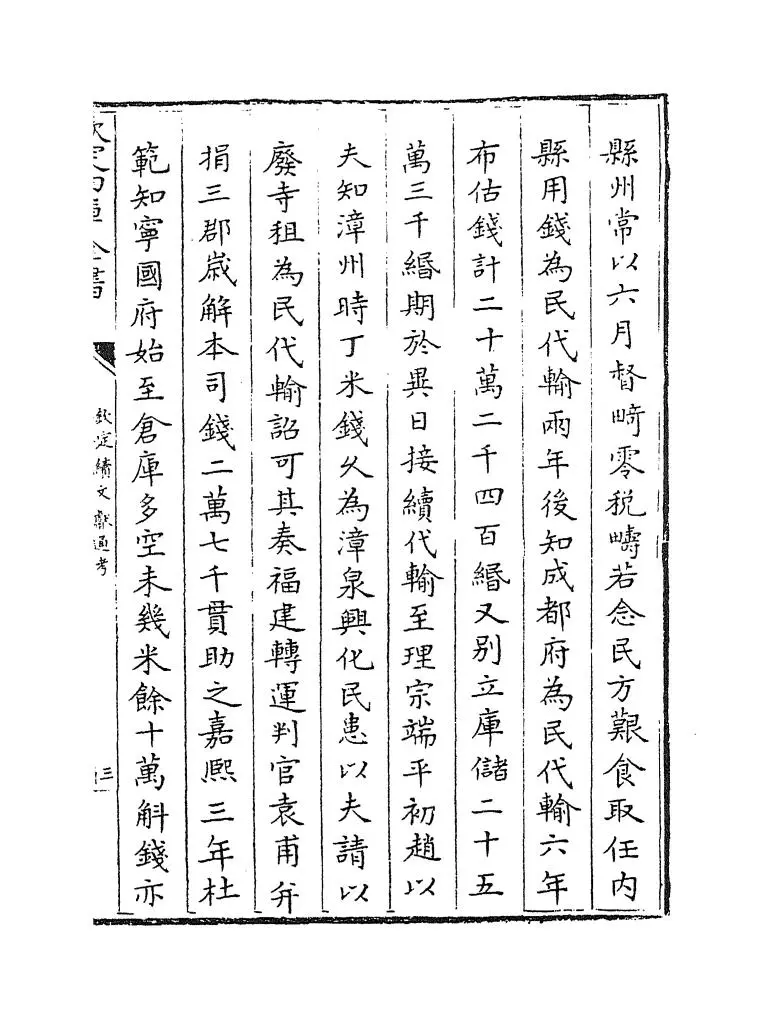 縣州常以六月督畸零税疇若念民方艱食取任内
縣用錢為民代輸兩年後知成都府為民代輸六年
布估錢計二十萬二千四百緡又别立庫儲二十五
萬三千緡期於異日接續代輸至理宗端平初趙以
夫知漳州時丁米錢久為漳泉興化民患以夫請以
廢寺租為民代輸詔可其奏福建轉運判官袁甫并
捐三郡嵗解本司錢二萬七千貫助之嘉熙三年杜
範知寧國府始至倉庫多空未幾米餘十萬斛錢亦
欽定四庫全書
欽定續文獻通考
三